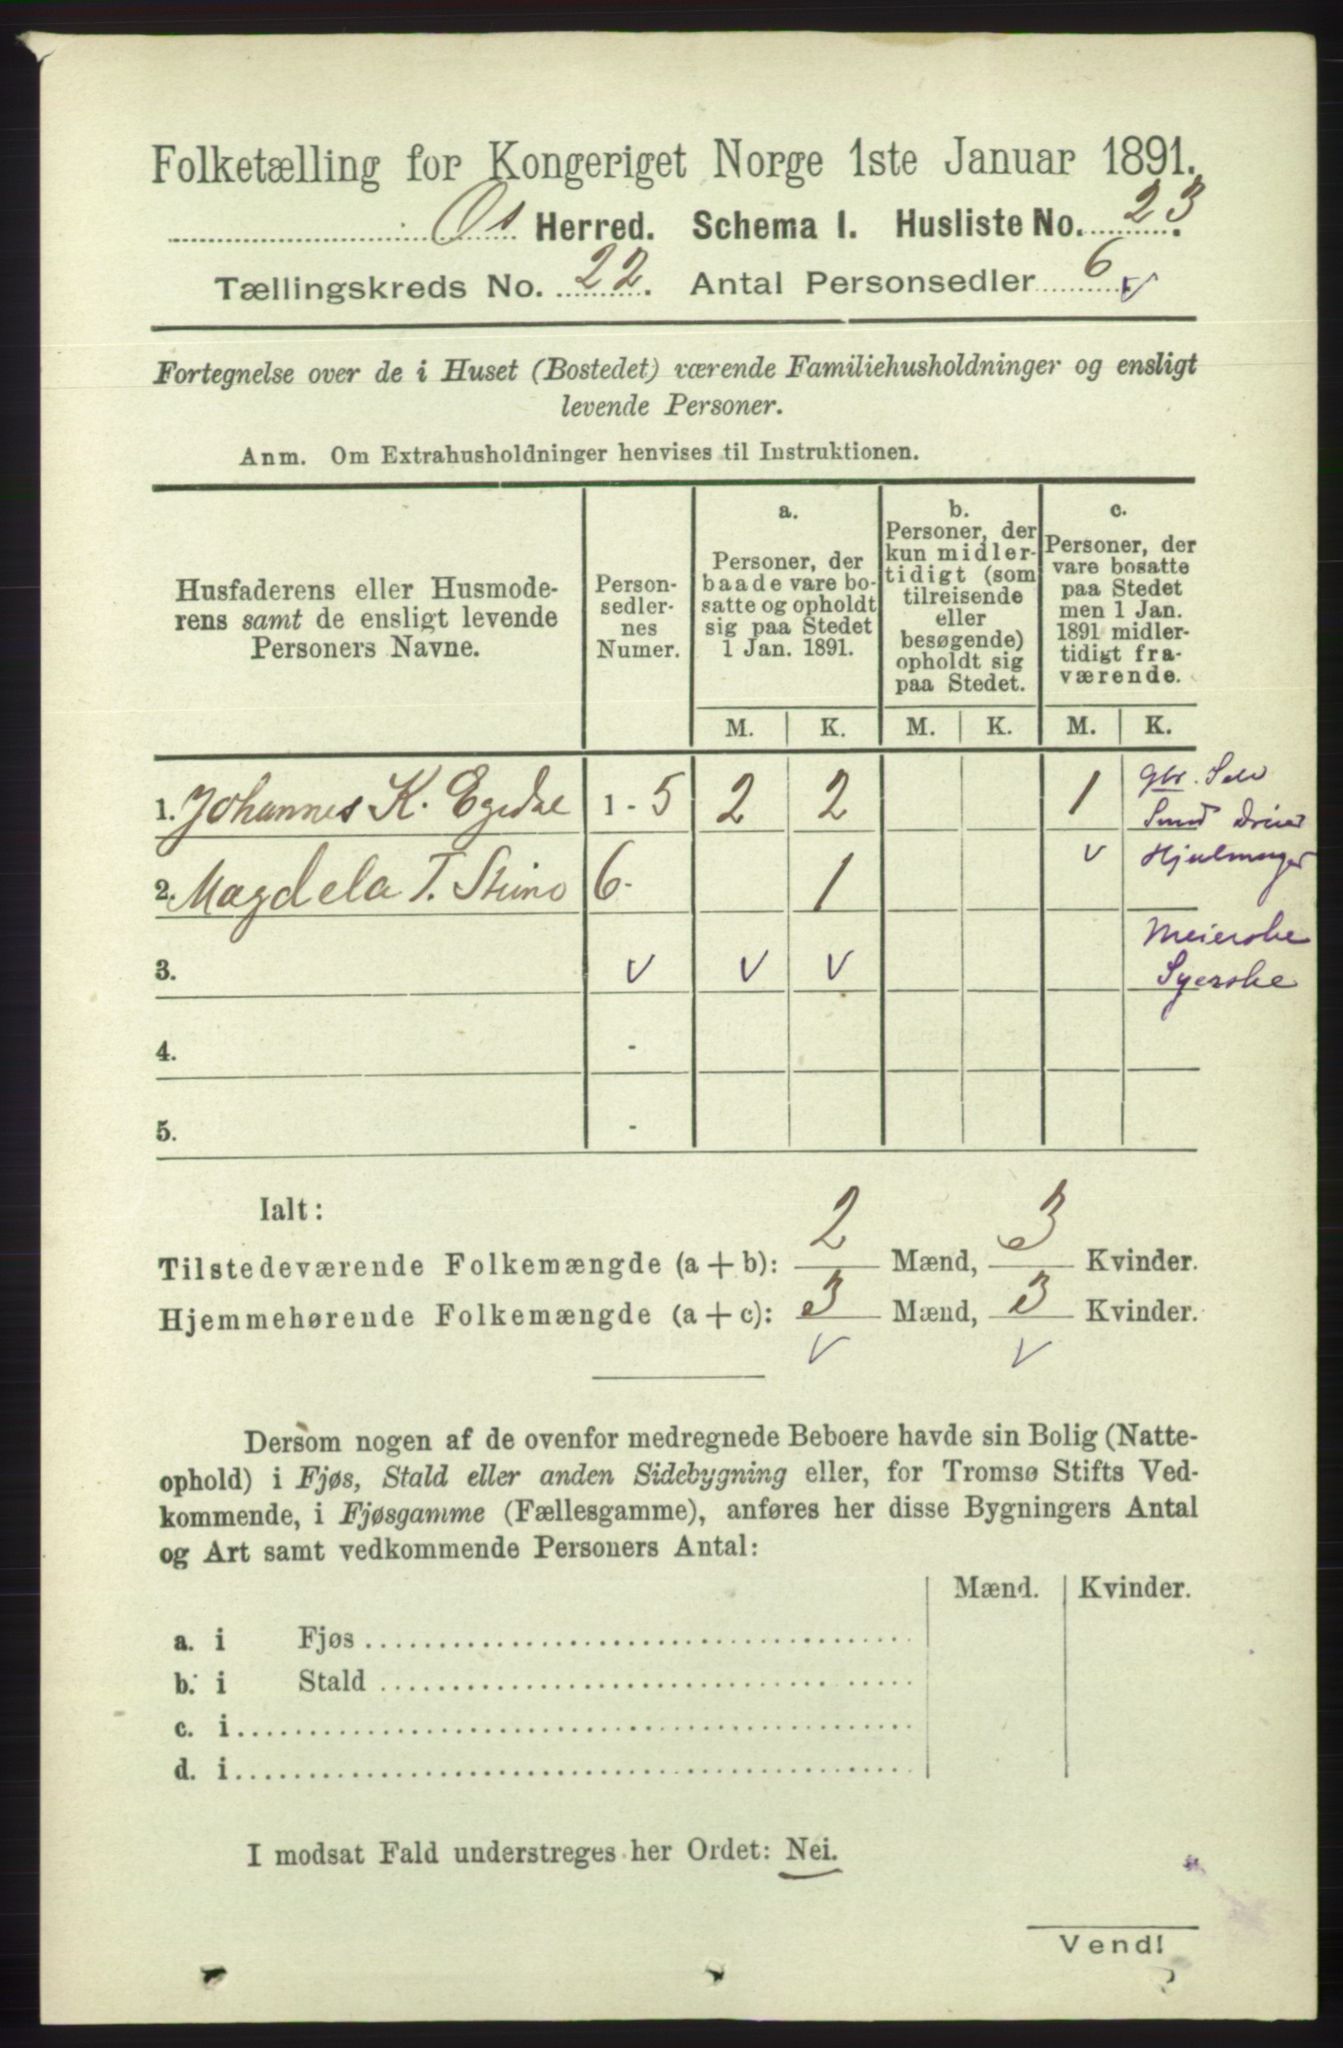 Folketælling for Kongeriget Norge 1ste Januar 1891.
Os Herred. Schema I. Husliste No. 23.
Tællingskreds No. 22. Antal Personsedler 6 v
Fortegnelse over de i Huset (Bostedet) værende Familiehusholdninger og ensligt
levende Personer.
Anm. Om Extrahusholdninger henvises til Instruktionen.
Husfaderens eller Husmode-
rens samt de ensligt levende
Personers Navne.
Person-
sedler-
nes
Numer.
a.
Personer, der
baade vare bo-
satte og opholdt
sig paa Stedet
1 Jan. 1891.
b.
Personer, der
kun midler-
tidigt (som
tilreisende
eller
besøgende)
opholdt sig
paa Stedet.
c.
Personer, der
vare bosatte
paa Stedet
men 1 Jan.
1891 midler-
tidigt fra-
værende.
M. K. M. K. M. K.
1. Johannes K. Egedal 1 - 5 2 2 1
Gbr. Selv
Smed
v Hjulmager
2. Magdela T. 6 - 1
Meierske
3. v v v Syerske
4. -
5. -
Ialt:
Tilstedeværende Folkemængde (a + b): 2 Mænd, 3 Kvinder.
Hjemmehørende Folkemængde (a + c): 3 Mænd, 3 Kvinder.
v v
Dersom nogen af de ovenfor medregnede Beboere havde sin Bolig (Natte-
ophold) i Fjøs, Stald eller anden Sidebygning eller, for Tromsø Stifts Ved-
kommende, i Fjøsgamme (Fællesgamme), anføres her disse Bygningers Antal
og Art samt vedkommende Personers Antal:
Mænd. Kvinder.
a. i Fjøs
b. i Stald
c. i
d. i
I modsat Fald understreges her Ordet: Nei.
Vend!